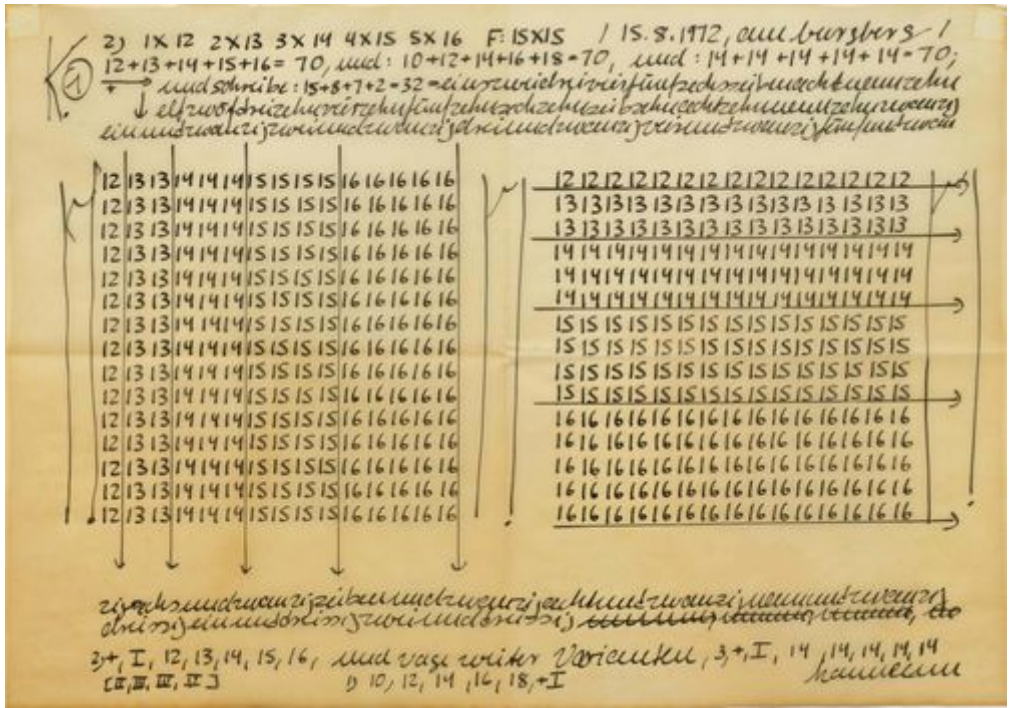 2) 1X12 2X13 3X14 4X15 5X16 F: 15X15 / 15.8.1972, am burgberg /
① 12+13+14+15+16= 70, und: 10+12+14+16+18=70, und: 14+14+14+14+14=70;
+ und schreibe: 15+8+7+2=32=einszweidreivierfünfsechssiebenachtneunzehn
elfzwölfdreizehnvierzehnfünfzehnsechzehnsiebzehnachtzehnneunzehnzwanzig
einundzwanzigzweiundzwanzigdreiundzwanzigvierundzwanzigfünfundzwan
12 13 13 14 14 14 15 15 15 15 16 16 16 16 16
12 13 13 14 14 14 15 15 15 15 16 16 16 16 16
12 13 13 14 14 14 15 15 15 15 16 16 16 16 16
12 13 13 14 14 14 15 15 15 15 16 16 16 16 16
12 13 13 14 14 14 15 15 15 15 16 16 16 16 16
12 13 13 14 14 14 15 15 15 15 16 16 16 16 16
12 13 13 14 14 14 15 15 15 15 16 16 16 16 16
12 13 13 14 14 14 15 15 15 15 16 16 16 16 16
12 13 13 14 14 14 15 15 15 15 16 16 16 16 16
12 13 13 14 14 14 15 15 15 15 16 16 16 16 16
12 13 13 14 14 14 15 15 15 15 16 16 16 16 16
12 13 13 14 14 14 15 15 15 15 16 16 16 16 16
12 13 13 14 14 14 15 15 15 15 16 16 16 16 16
12 13 13 14 14 14 15 15 15 15 16 16 16 16 16
12 13 13 14 14 14 15 15 15 15 16 16 16 16 16
12 12 12 12 12 12 12 12 12 12 12 12 12 12 12
13 13 13 13 13 13 13 13 13 13 13 13 13 13 13
13 13 13 13 13 13 13 13 13 13 13 13 13 13 13
14 14 14 14 14 14 14 14 14 14 14 14 14 14 14
14 14 14 14 14 14 14 14 14 14 14 14 14 14 14
14 14 14 14 14 14 14 14 14 14 14 14 14 14 14
15 15 15 15 15 15 15 15 15 15 15 15 15 15 15
15 15 15 15 15 15 15 15 15 15 15 15 15 15 15
15 15 15 15 15 15 15 15 15 15 15 15 15 15 15
15 15 15 15 15 15 15 15 15 15 15 15 15 15 15
16 16 16 16 16 16 16 16 16 16 16 16 16 16 16
16 16 16 16 16 16 16 16 16 16 16 16 16 16 16
16 16 16 16 16 16 16 16 16 16 16 16 16 16 16
16 16 16 16 16 16 16 16 16 16 16 16 16 16 16
16 16 16 16 16 16 16 16 16 16 16 16 16 16 16
zigsechsundzwanzigsiebenundzwanzigachtundzwanzigneunundzwanzig
dreissigeinunddreissigzweiunddreissig
2,+, I, 12, 13, 14, 15, 16, und vage weiter Varianten, 3,+, I, 14, 14, 14, 14, 14
1) 10, 12, 14, 16, 18, +I hanne